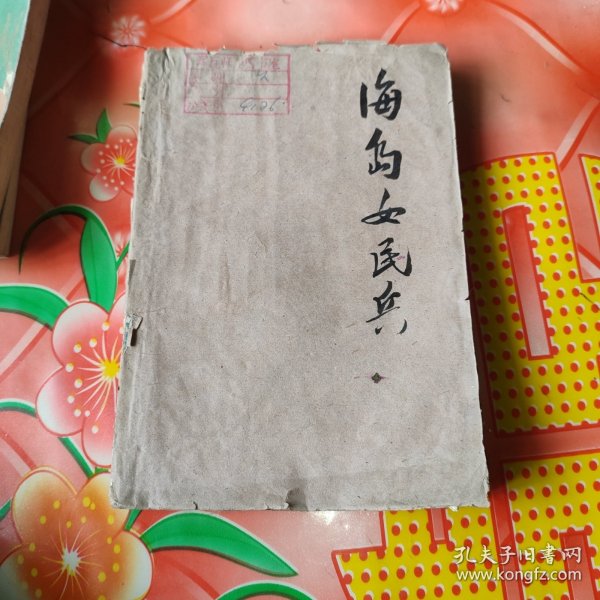 海岛女民兵
4126
孔夫子旧书网
www.kongfz.com